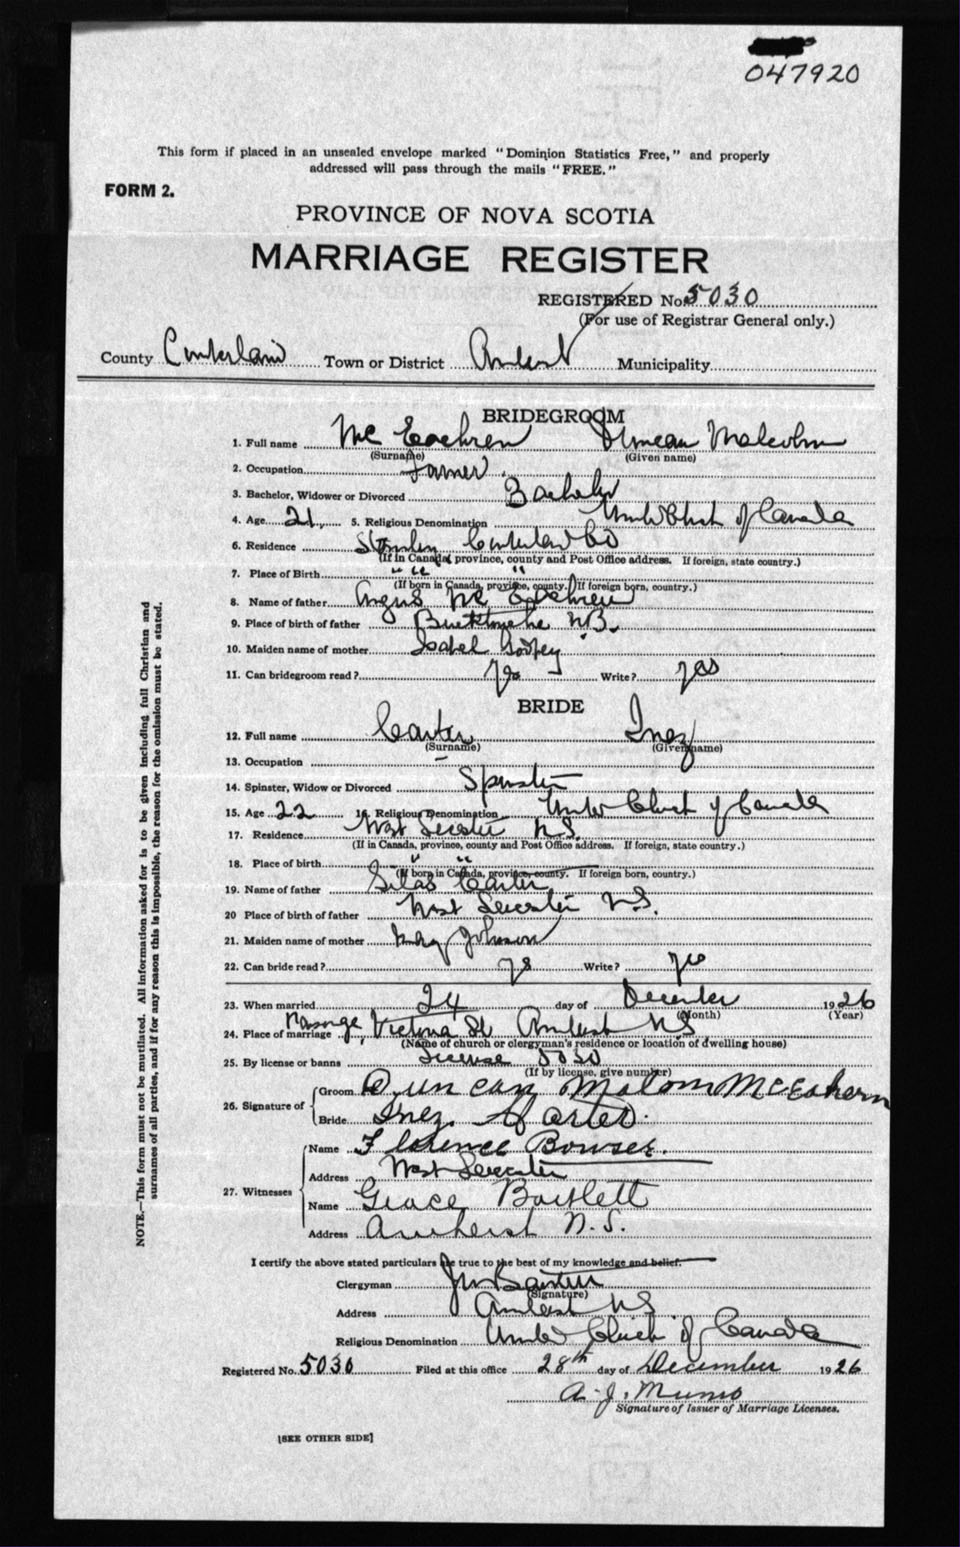 047920
This form if placed in an unsealed envelope marked "Dominion Statistics Free," and properly
addressed will pass through the mails "FREE."
FORM 2.
PROVINCE OF NOVA SCOTIA
MARRIAGE REGISTER
REGISTERED No. 5030
(For use of Registrar General only.)
County Cumberland Town or District Amherst Municipality
BRIDEGROOM
1. Full name Mc Eachren Duncan Malcolm
(Surname) (Given name)
2. Occupation Farmer
3. Bachelor, Widower or Divorced Bachelor
4. Age 21 5. Religious Denomination United Church of Canada
6. Residence Cumberland Co
(If in Canada, province, county and Post Office address. If foreign, state country.)
7. Place of Birth " " "
(If born in Canada, province, county. If foreign born, country.)
8. Name of father Angus Mc Eachren
9. Place of birth of father N.B.
10. Maiden name of mother Isabel
11. Can bridegroom read? Yes Write? yes
BRIDE
12. Full name Carter Inez
(Surname) (Given name)
13. Occupation –
14. Spinster, Widow or Divorced Spinster
15. Age 22 16. Religious Denomination United Church of Canada
17. Residence West Leicester N.S.
(If in Canada, province, county and Post Office address. If foreign, state country.)
18. Place of birth " "
(If born in Canada, province, county. If foreign born, country.)
19. Name of father Silas Carter
20 Place of birth of father West Leicester N.S.
21. Maiden name of mother Johnson
22. Can bride read? yes Write? yes
23. When married 24 day of December 1926
(Month) (Year)
24. Place of marriage Parsonage, Victoria St Amherst NS
(Name of church or clergyman's residence or location of dwelling house)
25. By license or banns License 5030
(If by license, give number)
26. Signature of
Groom Duncan Malcom McEahern
Bride Inez Carter.
27. Witnesses
Name Florence Bowser.
Address West Leicester
Name Grace Bartlett
Address Amherst N.S.
I certify the above stated particulars are true to the best of my knowledge and belief.
Clergyman
(Signature)
Address Amherst NS
Religious Denomination United Church of Canada
Registered No. 5030 Filed at this office 28th day of December 1926
A. J. Munro
Signature of Issuer of Marriage Licenses.
[SEE OTHER SIDE]
NOTE.—This form must not be mutilated. All information asked for is to be given including full Christian and
surnames of all parties, and if for any reason this is impossible, the reason for the omission must be stated.